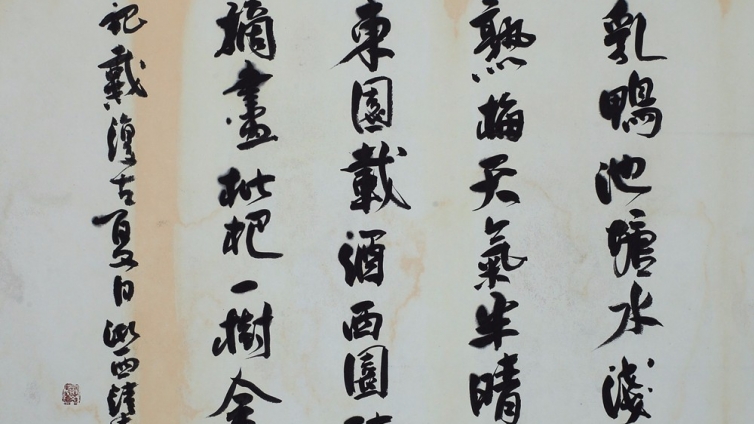 乳鴨池塘水淺
熟梅天氣半晴
東園載酒西園
摘盡枇杷一樹金
記戴復古夏日西